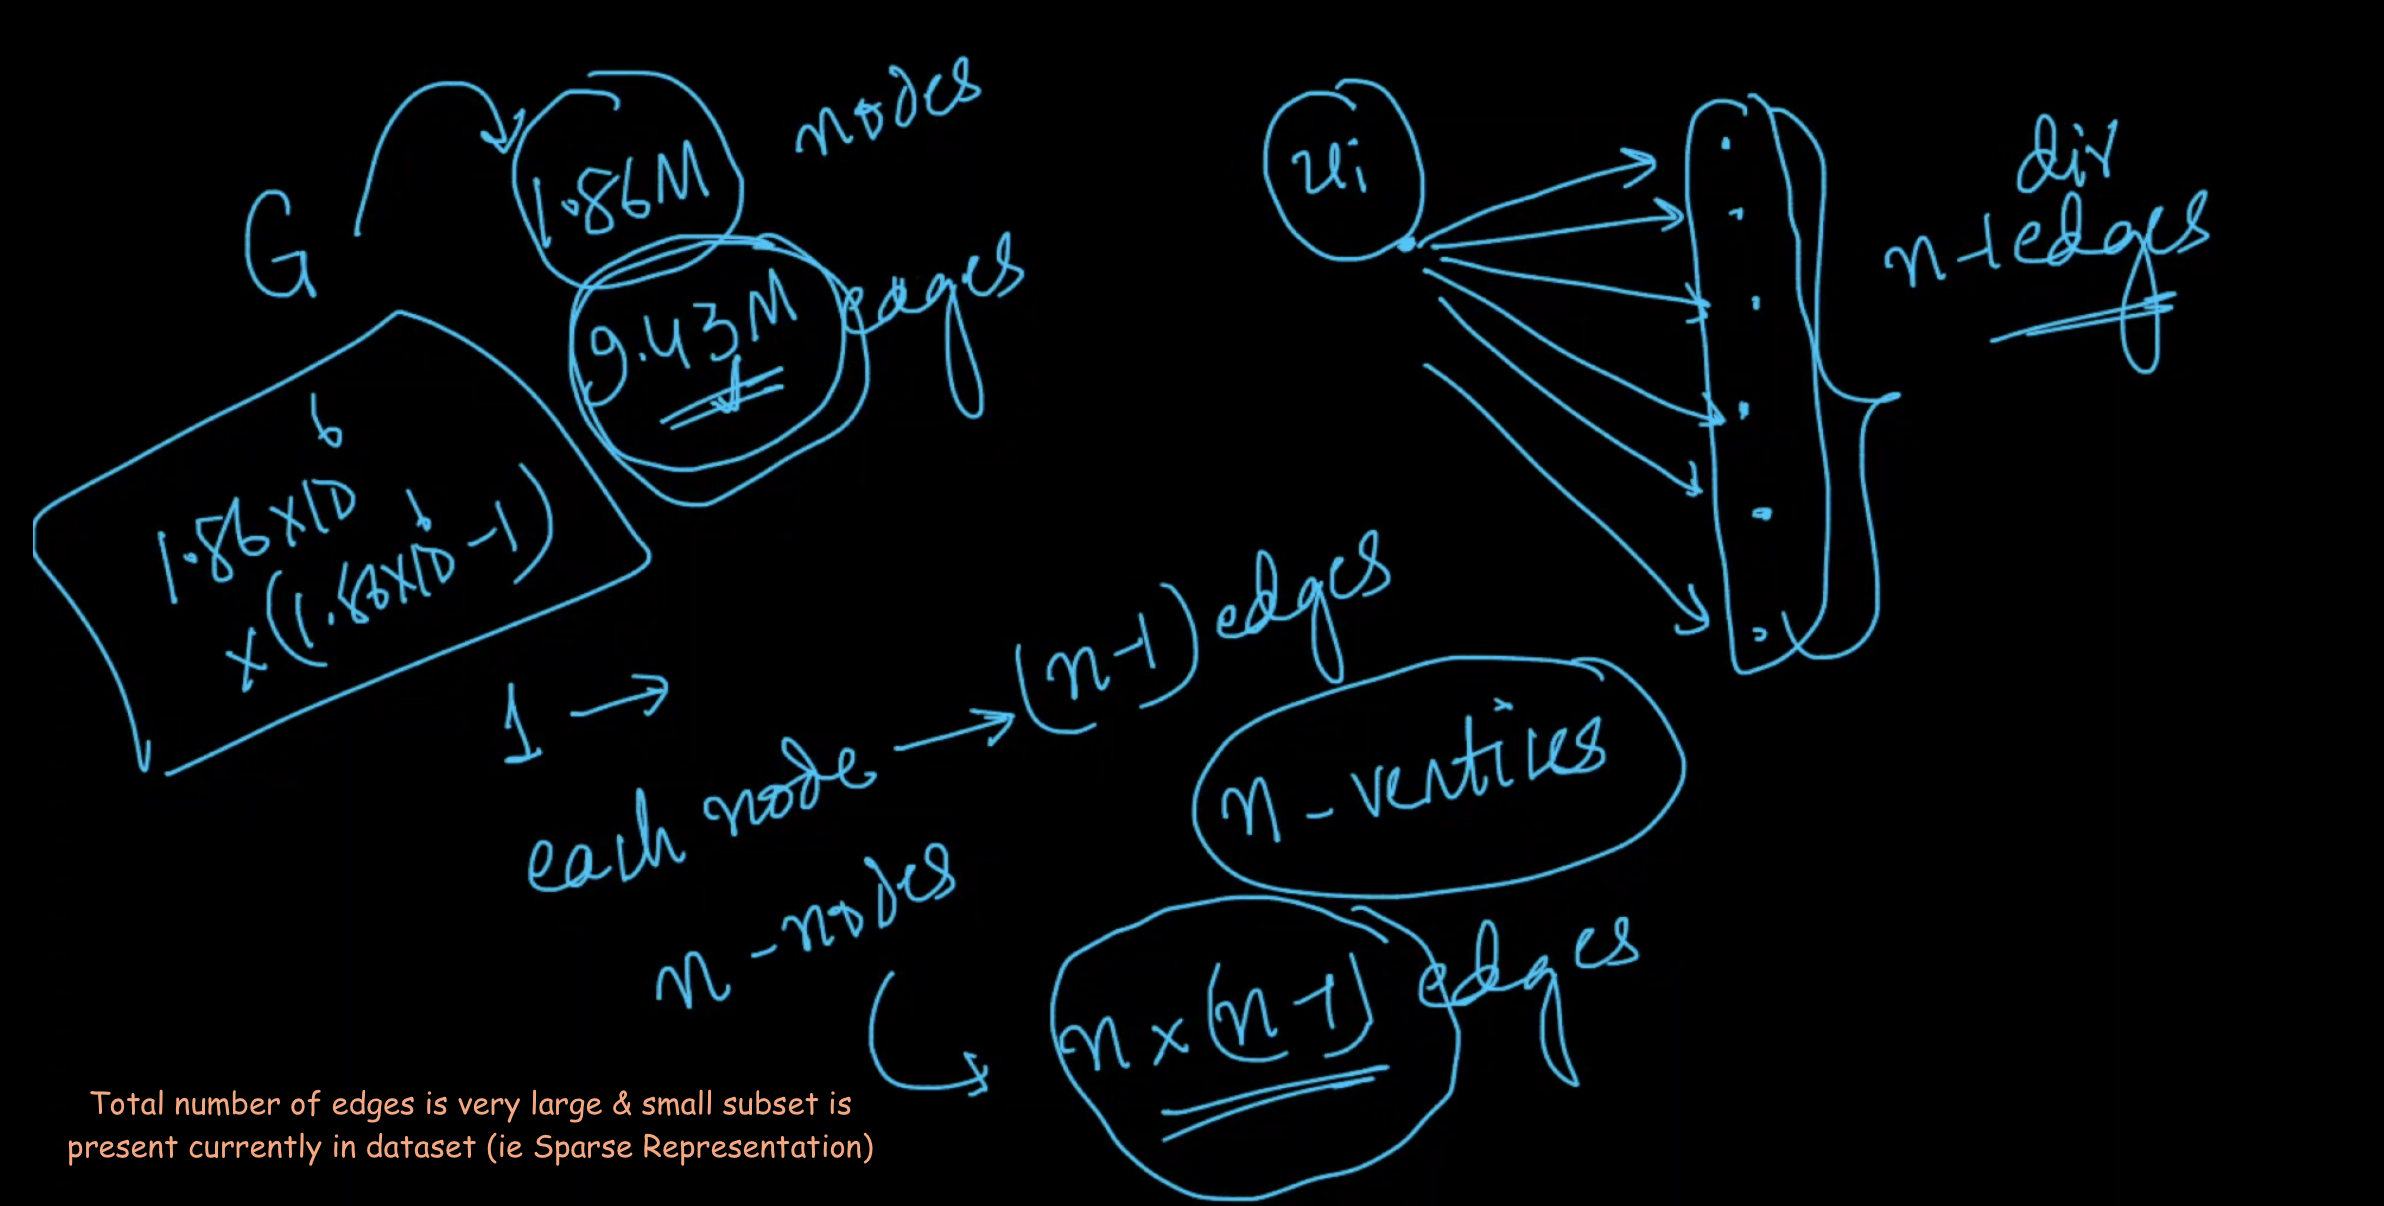 G
1.86M nodes
9.43M edges
1.86×10⁶
×(1.86×10⁶-1)
ui
dir
n-1 edges
1 →
each node → (n-1) edges
n-vertices
n-nodes
n×(n-1) edges
Total number of edges is very large & small subset is
present currently in dataset (ie Sparse Representation)